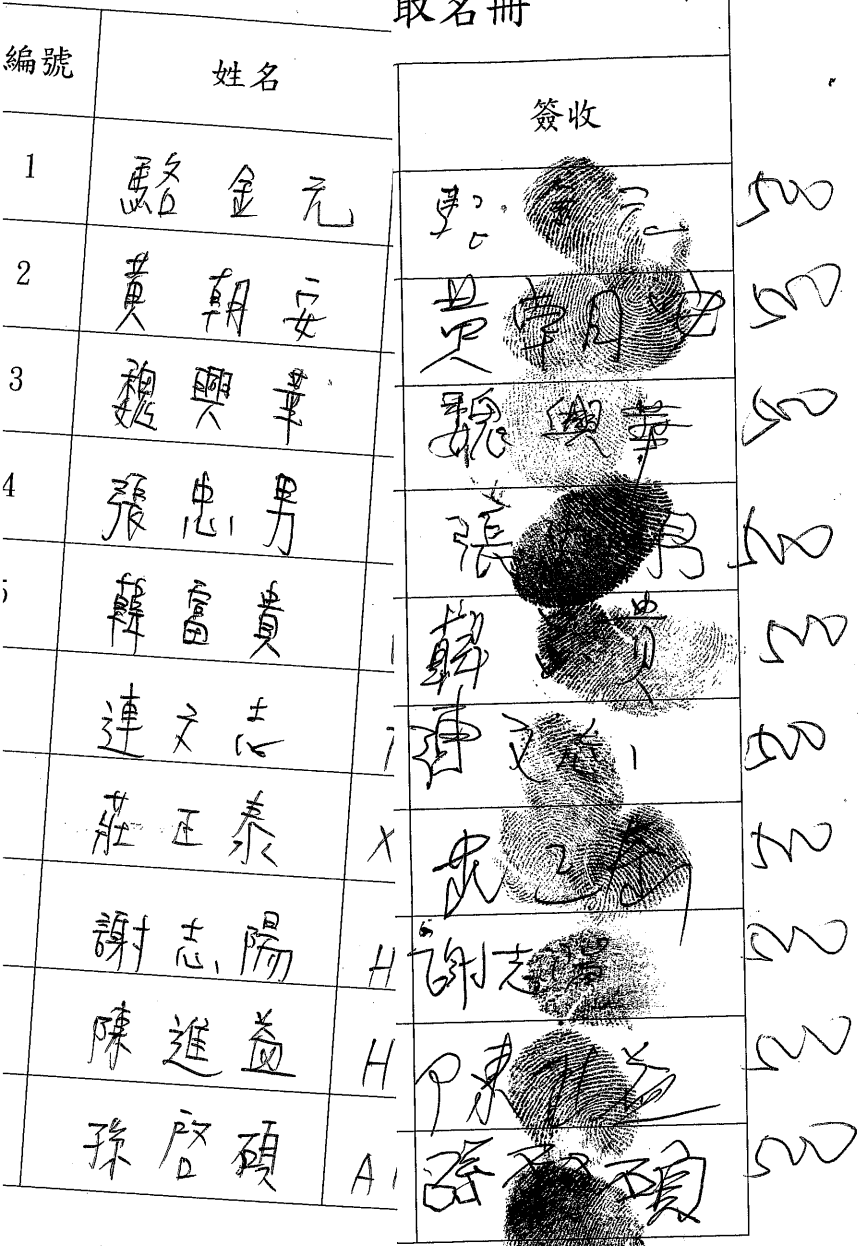 取名冊
編號 姓名 簽收
1 駱金元 駱金元 50
2 黃朝安 黃朝安 50
3 魏興華 魏興華 50
4 張忠男 張 男 50
韓富貴 韓富貴 50
連文志 連文志 50
莊正泰 X 50
謝志陽 H 謝志陽 50
陳進益 H 陳進益 50
孫啓碩 A 孫啓碩 50